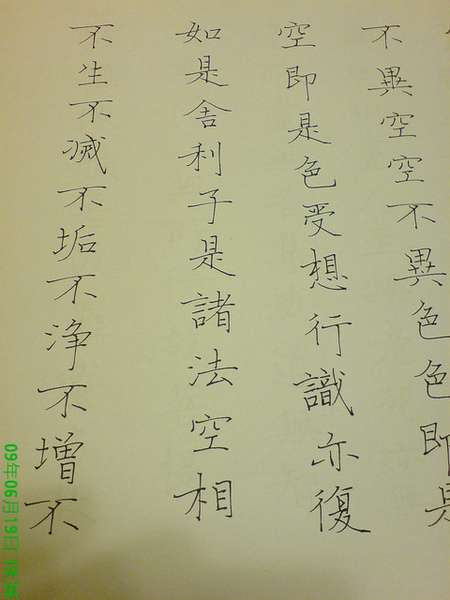 不異空空不異色色即是
空即是色受想行識亦復
如是舎利子是諸法空相
不生不滅不垢不浄不増不
09年06月19日